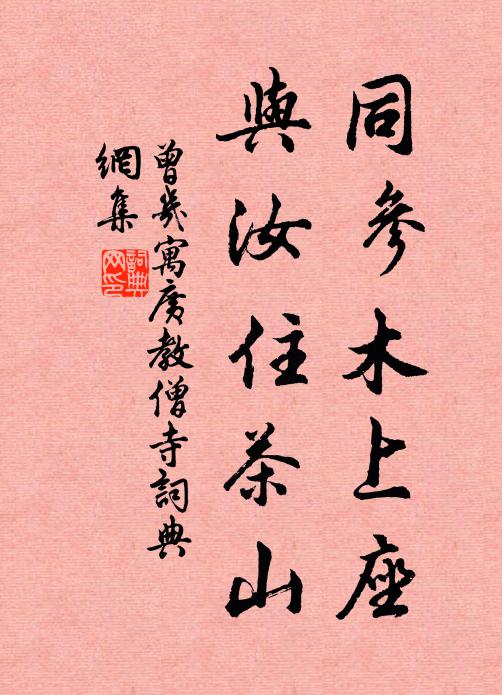 同參木上座
與汝住茶山
曾幾寓廣教僧寺詞典
網集
詞典
网印